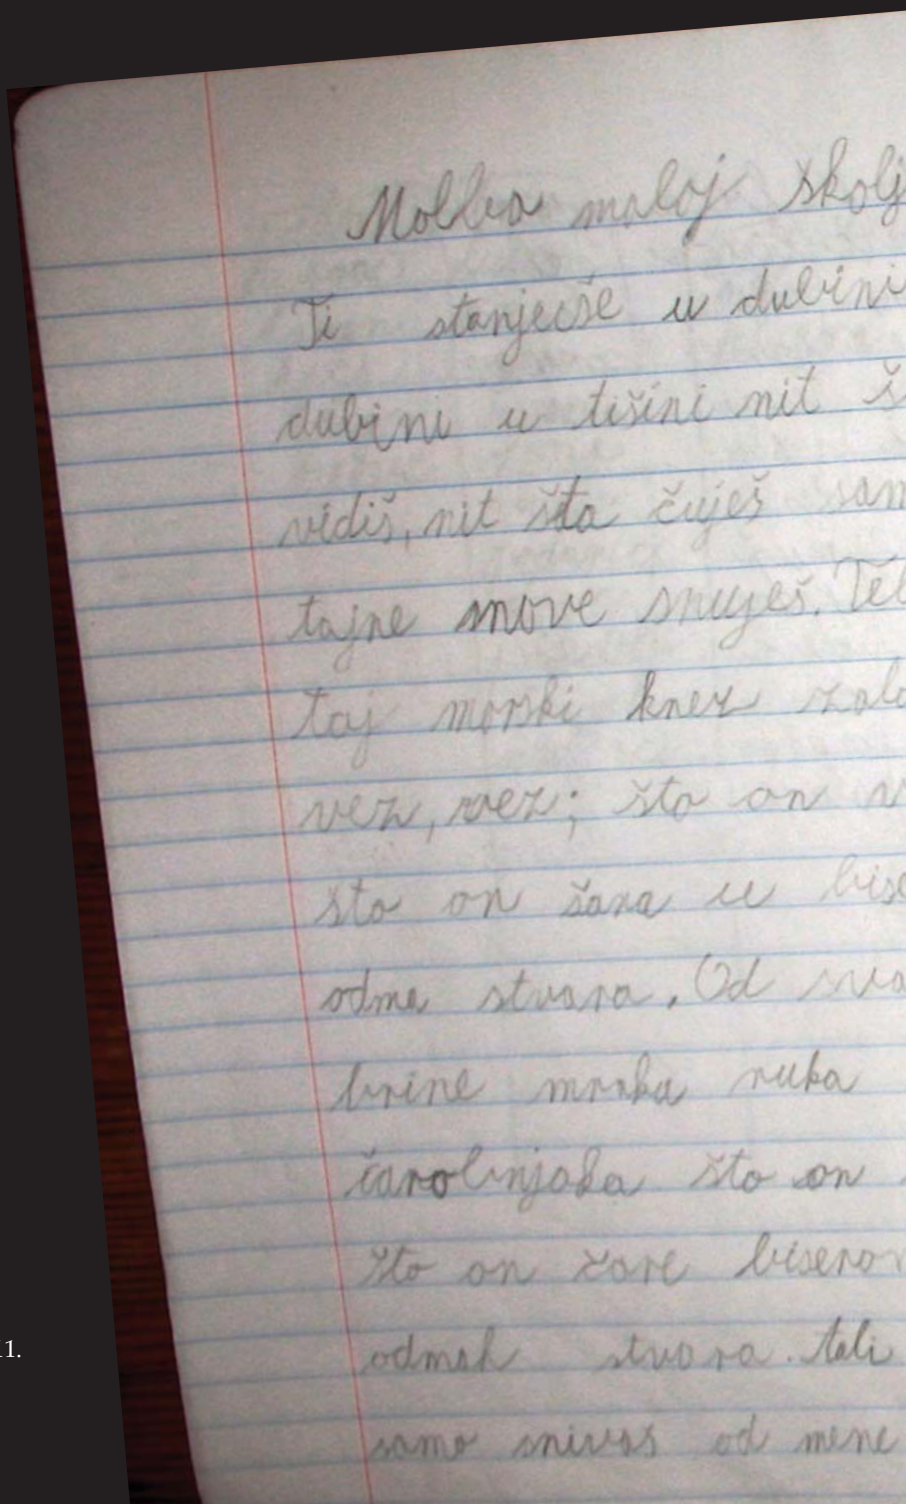 Molba maloj školj
Ti stanješe u dubini
dubini u tišini nit š
vidiš, nit šta čuješ sam
tajne snove snuješ. Teb
taj morski knez zala
vez, vez; što on v
što on šara u bise
odma stvara. Od sva
brine mrska ruka
čarobnjaka što on
što on zare biseror
odmah stvara. tali
samo snivas od mene
11.